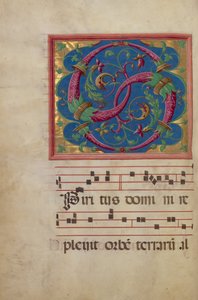 Spiritus domini re
plevit orbē terrarū al